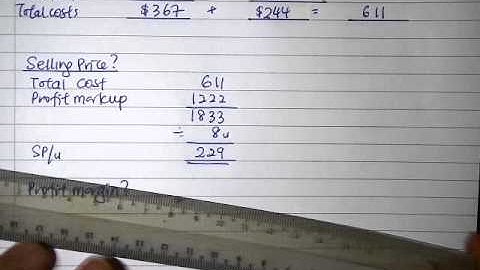 Total costs $367 + $244 = 611
Selling Price?
Total cost 611
Profit markup 1222
1833
÷ 8u
SP/u 229
Profit margin?